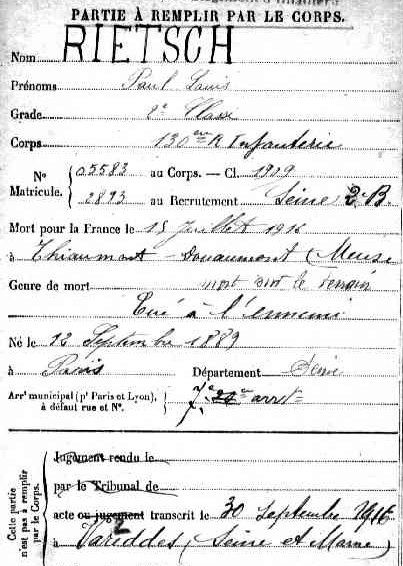 PARTIE À REMPLIR PAR LE CORPS.
Nom RIETSCH
Prénoms Paul Louis
Grade 2e Classe
Corps 130eme R Infanterie
No 05583 au Corps. — Cl. 1909
Matricule. 2893 au Recrutement Seine 2 B
Mort pour la France le 15 Juillet 1916
à Thiaumont - Douaumont (Meuse
Genre de mort mort sur le terrain
Tué à l'ennemi
Né le 12 Septembre 1889
à Paris Département Seine
Arrt municipal (pr Paris et Lyon), à défaut rue et No. 7e arrt
Cette partie n'est pas à remplir par le Corps.
Jugement rendu le
par le Tribunal de
acte ou jugement transcrit le 30 Septembre 1916
à Vareddes (Seine et Marne)